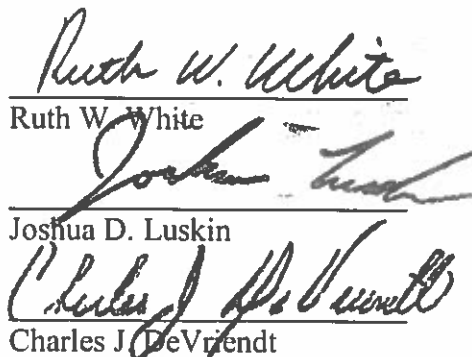 Ruth W. White
Ruth W. White
Joshua Luskin
Joshua D. Luskin
Charles J. DeVriendt
Charles J. DeVriendt